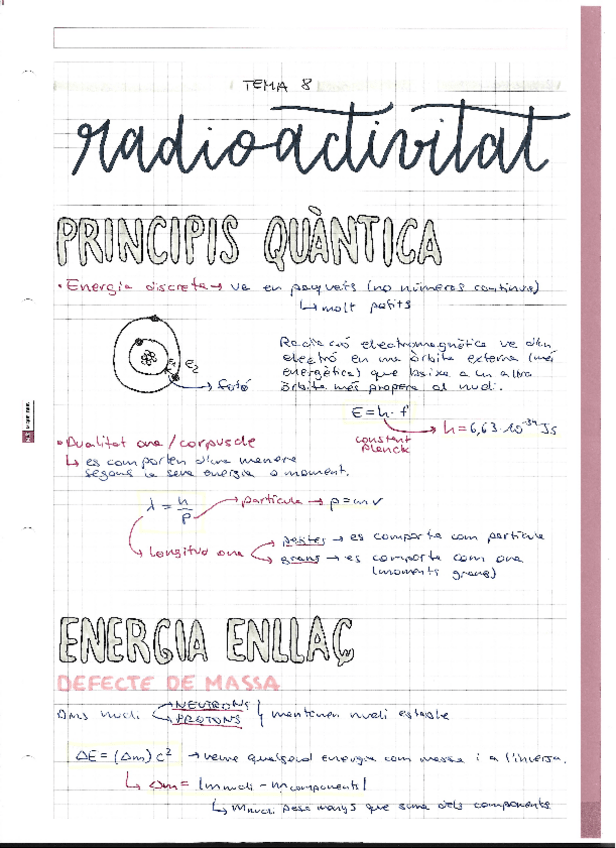 TEMA 8
radioactivitat
PRINCIPIS QUÀNTICA
• Energia discreta → ve en paquets (no números continus)
↳ molt petits
E₁ E₂
→ fotó
Radiació electromagnètica ve d'un
electró en una òrbita externa (més
energètica) que baixa a un altra
òrbita més propera al nucli.
E = h · f
constant
Planck
→ h = 6,63·10⁻³⁴ Js
• Dualitat ona/corpuscle
↳ es comporten d'una manera
segons la seva energia o moment.
λ = h/p → partícula → p = mv
↳ longitud ona
→ petites → es comporta com partícula
→ grans → es comporta com ona
(moments grans)
ENERGIA ENLLAÇ
DEFECTE DE MASSA
Dins nucli
NEUTRONS
PROTONS
mantenen nucli estable
ΔE = (Δm) c² → veure qualsevol energia com massa i a l'inversa.
↳ Δm = |mnucli - mcomponents|
↳ Mnucli pesa menys que suma dels components